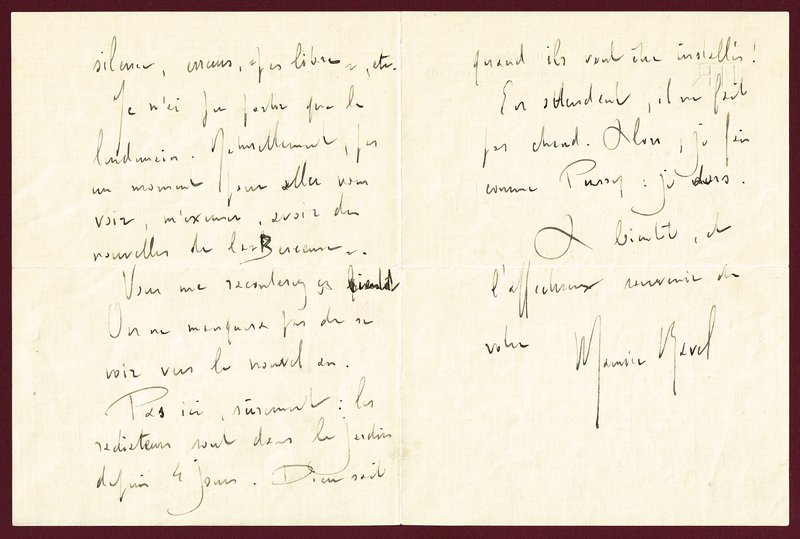 silence, erreurs, "pas libre", etc.
Je n'ai pu partir que le
lendemain. Naturellement, pas
un moment pour aller vous
voir, m'excuser, avoir des
nouvelles de la "Berceuse".
Vous me raconterez ça bientôt
On ne manquera pas de se
voir vers le nouvel an.
Pas ici, sûrement : les
radiateurs sont dans le jardin
depuis 4 jours. Dieu sait
quand ils vont être installés !
En attendant, il ne fait
pas chaud. Alors, je fais
comme Pussy : je dors.
A bientôt, et
l'affectueux souvenir de
votre Maurice Ravel